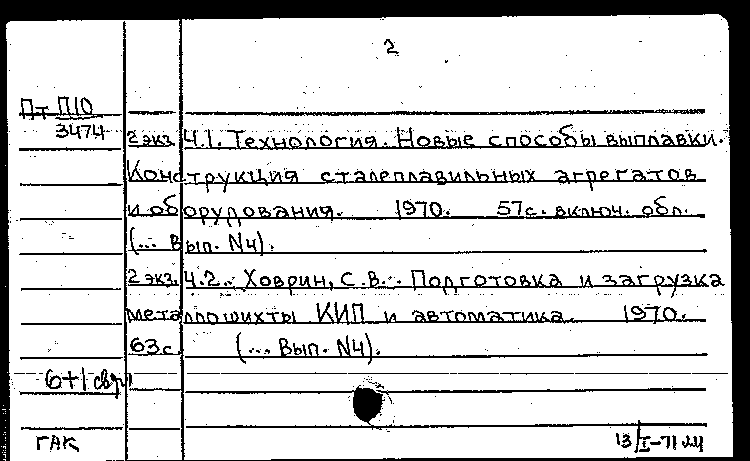 2
Пт П10
3474
2 экз. Ч.1. Технология. Новые способы выплавки.
Конструкция сталеплавильных агрегатов
и оборудования. 1970. 57с. включ. обл.
(... Вып. N4).
2 экз. Ч.2. Ховрин, С.В. Подготовка и загрузка
металлошихты КИП и автоматика. 1970.
63с. (... Вып. N4).
6+1
ГАК
13/I-71